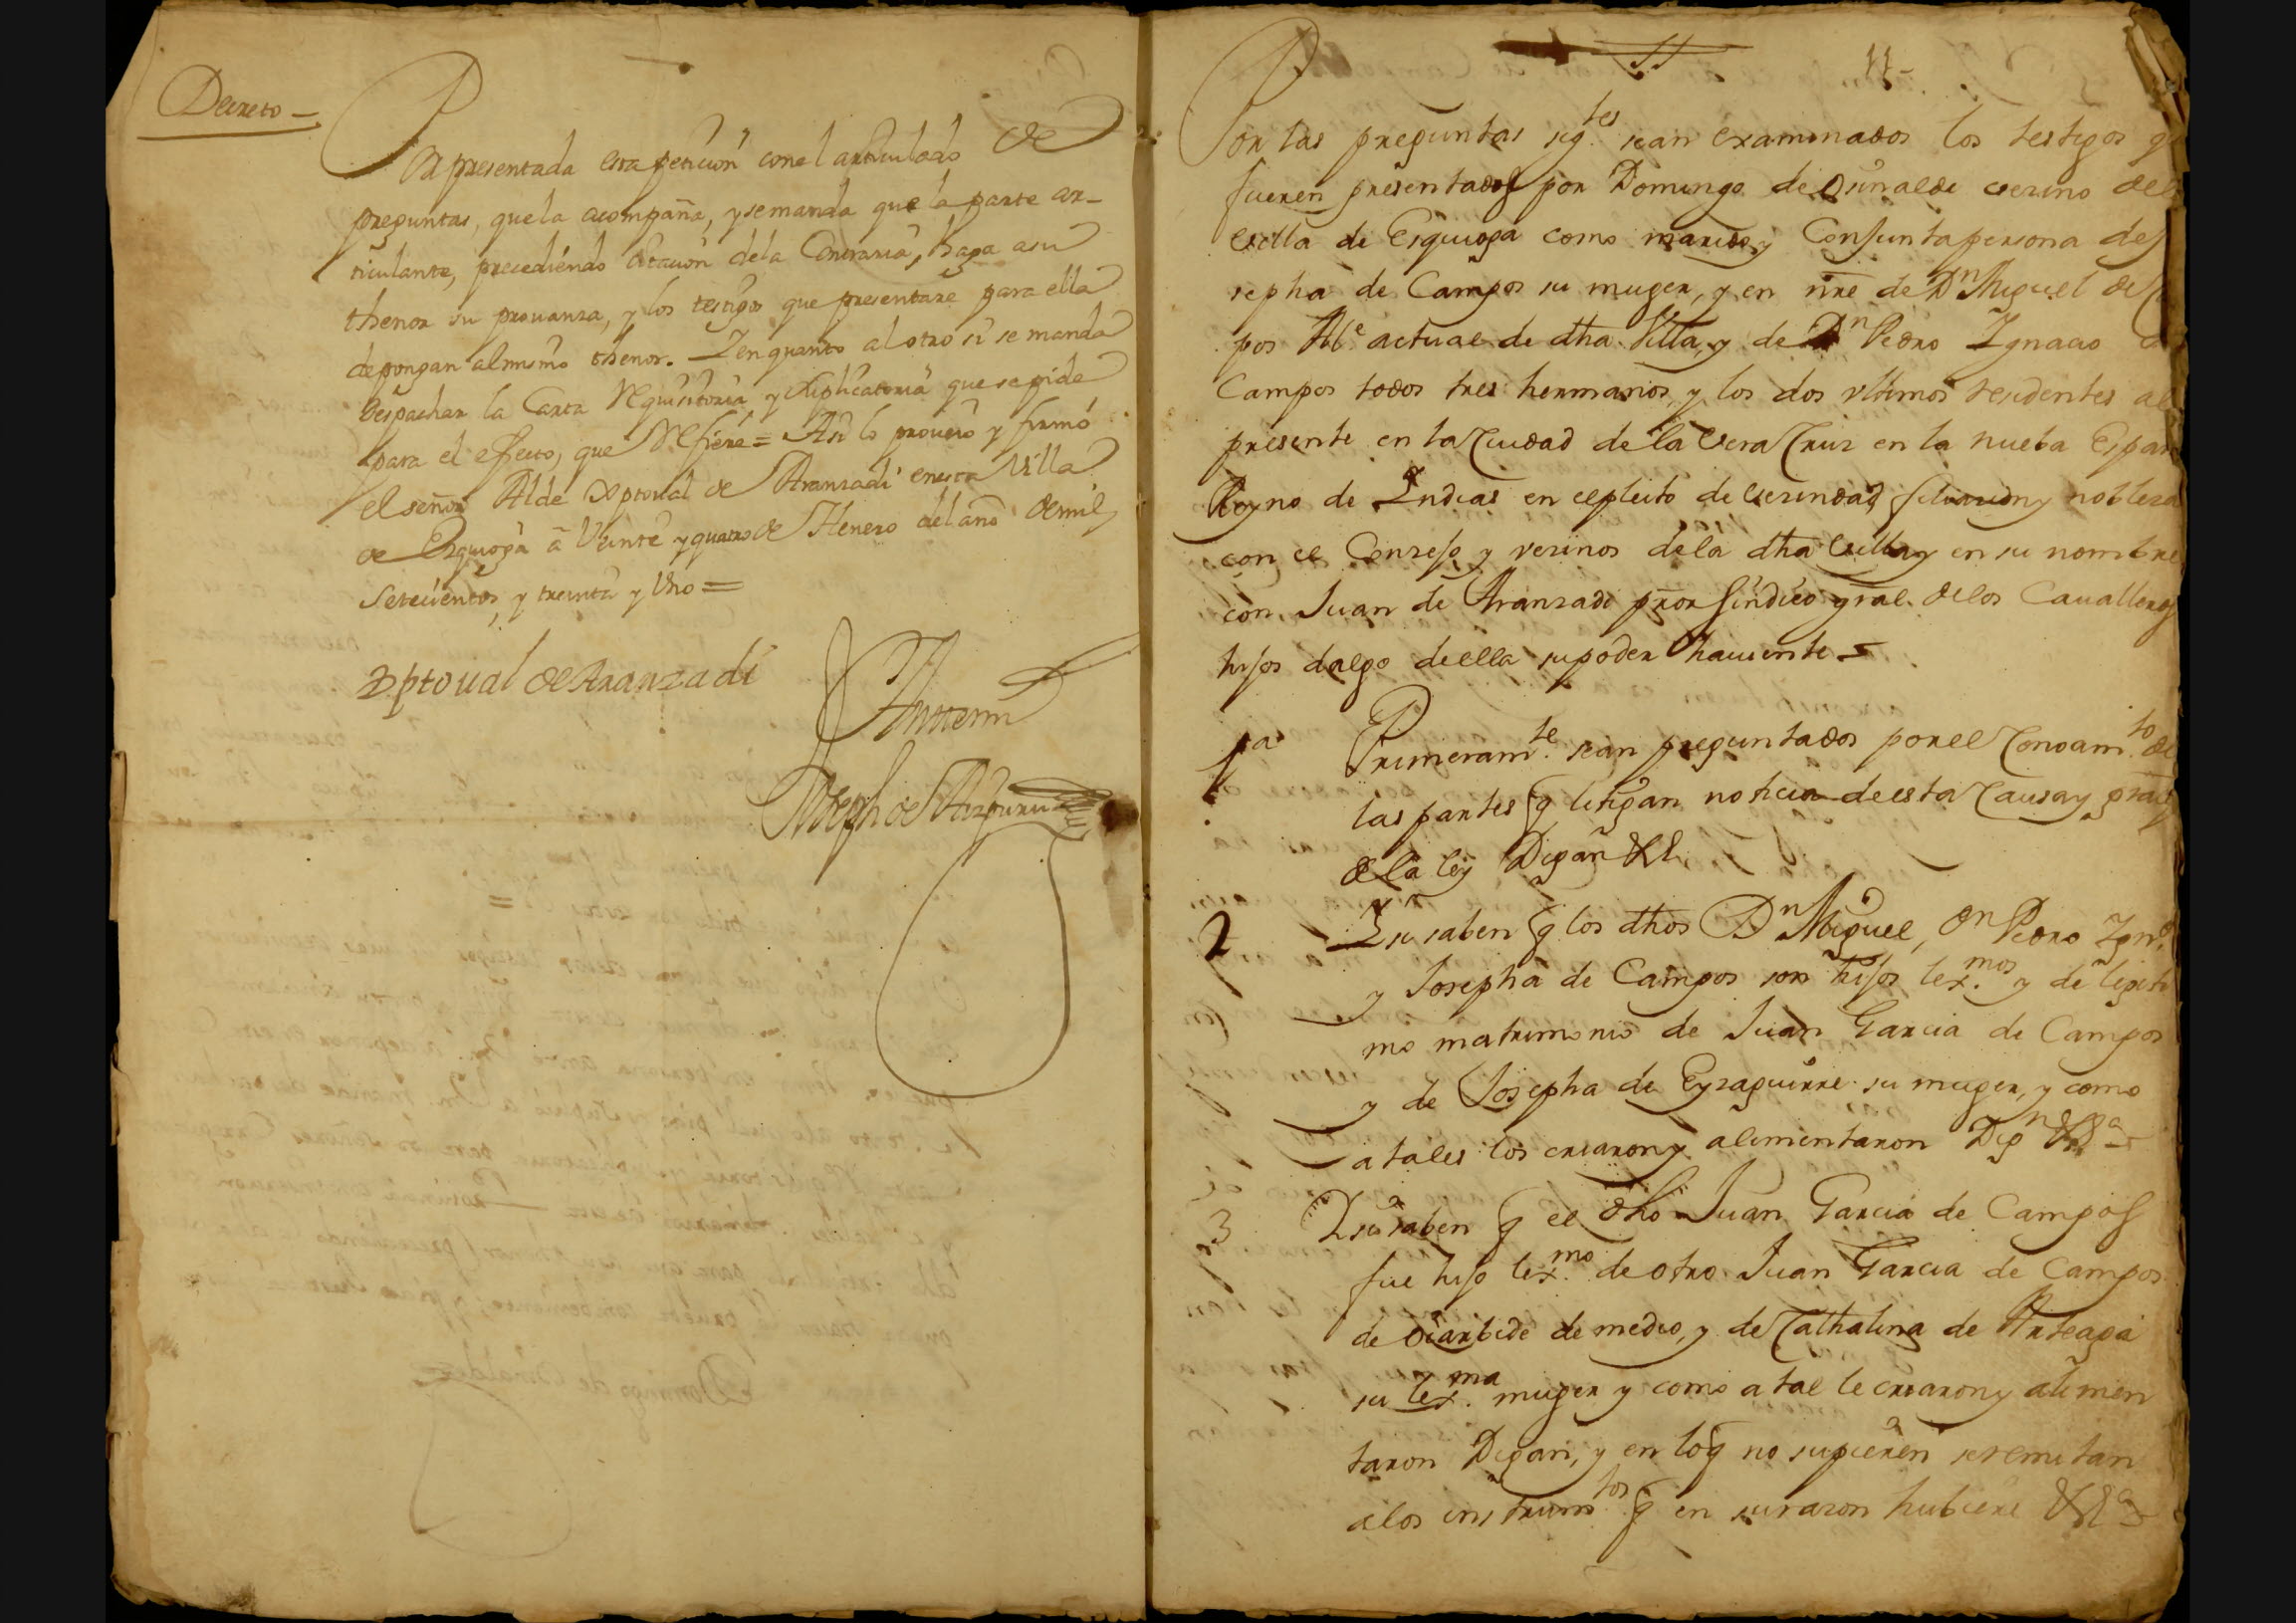 Decreto –
Por presentada esta petiçion con el articulado de
preguntas, que la acompaña, y se manda que la parte ar-
ticulante, precediendo citacion de la Contraria, haga a su
thenor su prouanza, y los testigos que presentare para ella
depongan al mismo thenor. Y en quanto al otro si se manda
despachar la Carta Requisitoria y suplicatoria que se pide
para el efecto, que Refiere = Asi lo proueio y firmó
el señor Alde Xptoual de Aranzadi en esta Villa
de Ezquioga â Veinte y quatro de Henero del año de mil
setecientos, y treinta y Uno =
Xptoual de Aranzadi
Antemi
Joseph de Aizpuru
11
11-
Por las preguntas sigtes sean examinados los testigos q
fueren presentados por Domingo de Osinalde vezino de la
villa de Ezquioga como marido y Conjunta persona de Jo
sepha de Campos su muger, y en nre de Dn Miguel de
pos Alc actual de dha Villa, y de Dn Pedro Ignacio
Campos todos tres hermanos, y los dos vltimos residentes al
presente en la Ciudad de la Vera Cruz en la nueba Espan
Reyno de Indias en el pleito de vezindad filiacion y nobleza
con el Consejo y vezinos de la dha villa y en su nombre
con Juan de Aranzadi pror sindico gral. de los Caualleros
hijos dalgo de ella su poder hauiente =
1 pa Primeramte sean preguntados por el Conosimto de
las partes q litigan noticia de esta Causa y grales
de la ley Digan &a
2 Y si saben q los dhos Dn Miguel, Dn Pedro Igno
y Josepha de Campos son hijos lexmos y de legiti
mo matrimonio de Juan Garcia de Campos
y de Josepha de Eyzaguirre su muger, y como
a tales los criaron y alimentaron Dign &a =
3 Y si saben q el dho Juan Garcia de Campos
fue hijo lexmo de otro Juan Garcia de Campos
de Oiarbide de medio, y de Cathalina de Arteaga
su lexma muger y como a tal le criaron y alimen
taron Digan, y en lo q no supieren se remitan
a los instrumtos q en su razon hubiere &a =